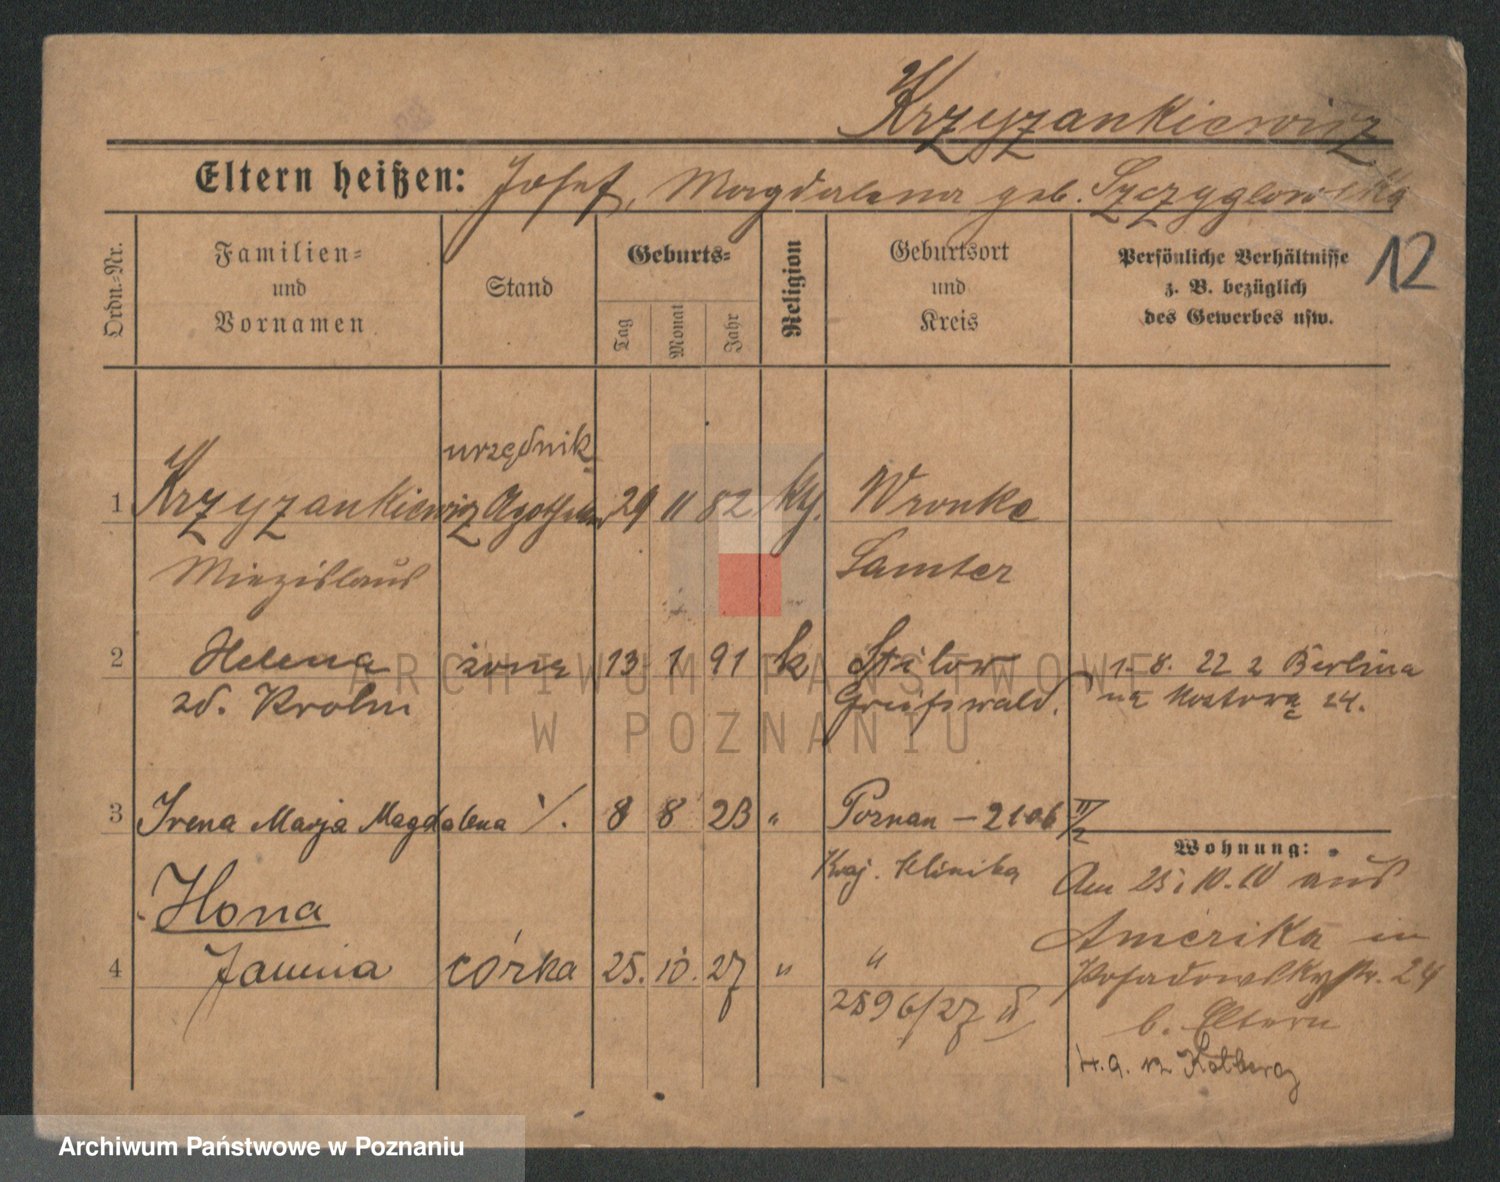 Krzyzankiewicz
Eltern heißen: Josef, Magdalena geb. Szczyglowska
12
Ordn.=Nr.
Familien=
und
Vornamen
Stand
Geburts=
Tag
Monat
Jahr
Religion
Geburtsort
und
Kreis
Persönliche Verhältnisse
z. B. bezüglich
des Gewerbes usw.
urzędnik
1 Krzyzankiewicz 29 11 82 Wronke
Miezislaus Samter
2 Helena żona 13 1 91 k Stilow 1. 8. 22 z Berlina
zd. Krohn Greifswald. na 24.
3 Irena Marja Magdalena 8 8 23 " Poznan – 2106 II/2
Kraj. Klinika
Wohnung:
Am 25 10. 10 aus
Ilona
Amerika in
4 Janina córka 25. 10. 27 " " Posadowskystr. 24
2596/27 II b. Eltern
Kolberg
ARCHIWUM PAŃSTWOWE
W POZNANIU
Archiwum Państwowe w Poznaniu